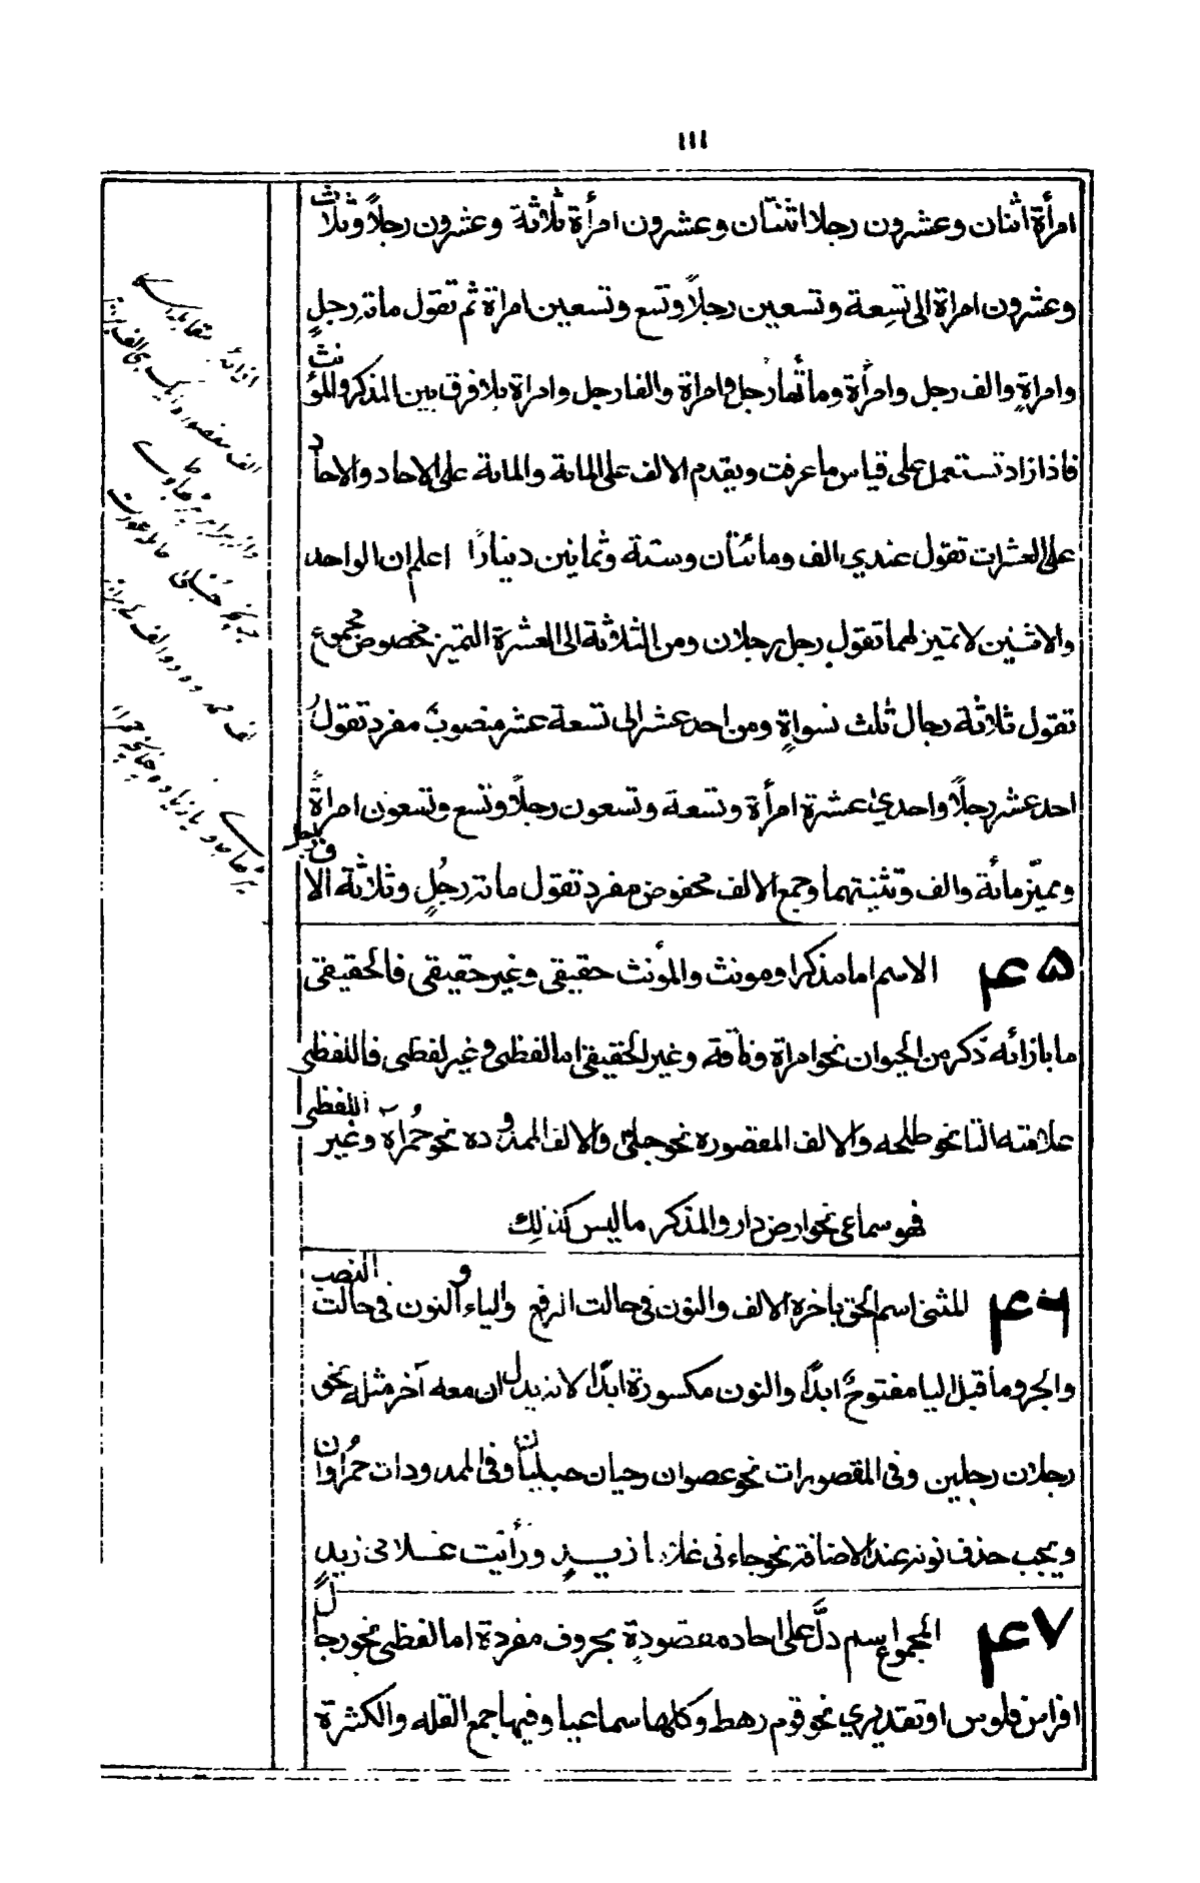 ١١١
امرأة اثنان وعشرون رجلا اثنتان وعشرون امرأة ثلاثة وعشرون رجلاً وثلاث
وعشرون امراة الى تسعة وتسعين رجلاً وتسع وتسعين امراة ثم تقول مائة رجلٍ
وامراةٍ والف رجل وامرأة ومأتا رجل وامراة والفا رجل وامراة بلا فرق بين المذكر والمؤنث
فاذا زاد تستعمل على قياس ما عرفت ويقدم الالف على المائة والمائة على الاحاد والاحاد
على العشرات تقول عندي الف ومائتأن وستة وثمانين دينارًا اعلم ان الواحد
والاثنين لا تميز لهما تقول رجل رجلان ومن الثلاثة الى العشرة التميز مخصوص مجموع
تقول ثلاثة رجال ثلث نسواةٍ ومن احد عشر الى تسعة عشر منصوبٌ مفرد تقولُ
احد عشر رجلاً واحدي عشرة امرأة وتسعة وتسعون رجلاً وتسع وتسعون امراةً
ومميّز مائة والف وتثنيتهما وجمع الالف مخفوض مفرد تقول مائة رجُلٍ وثلاثة الاف رجل
۴۵ الاسم اما مذكر او مونث والمؤنث حقيقى وغير حقيقى فالحقيقى
ما بازائه ذكر من الحيوان نحو امراة وناقة وغير الحقيقى اما لفظى وغير لفظى فاللفظى
علامته التا نحو طلحه والالف المقصوره نحو حبلى والالف الممدوده نحو حُمراَة وغير اللفظى
فهو سماعى نحو ارض دار والمذكر ما ليس كذلِك
۴۶ المثنى اسم الحق باخره الالف والنون فى حالت الرفع والياء والنون فى حالت النصب
والجر وما قبل اليا مفتوحٌ ابدًا والنون مكسورة ابدًا لانه يدل ان معه آخر مثله نحو
رجلان رجلين وفى المقصورات نحو عصوان رحيان حبليان وفى الممدودات حُمراوان
ويجب حذف نونه عند الاضافة نحو جاءنى غلاما زيدٍ ورأيت غلامى زيدٍ
۴۷ المجموع اسم دلَّ على احاد مقصودةٍ بحروف مفردة اما لفظى نحو رجالً
افراس فلوس او تقديري نحو قوم رهط وكلها سماعيا وفيها جمع القله والكثرة